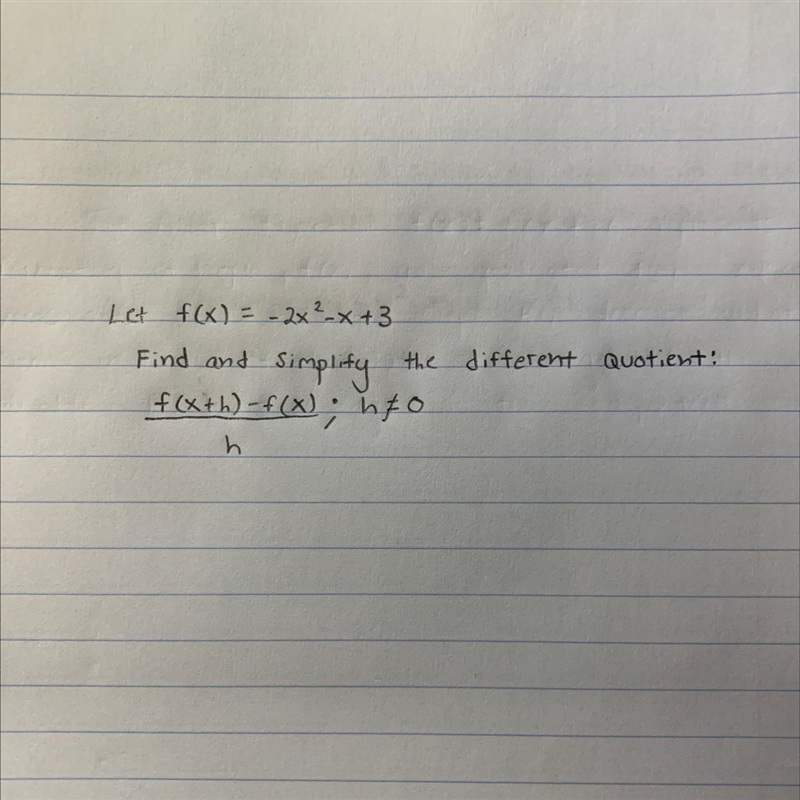 Let f(x) = -2x²-x+3
Find and simplify the different Quotient:
f(x+h)-f(x) ; h≠0
h